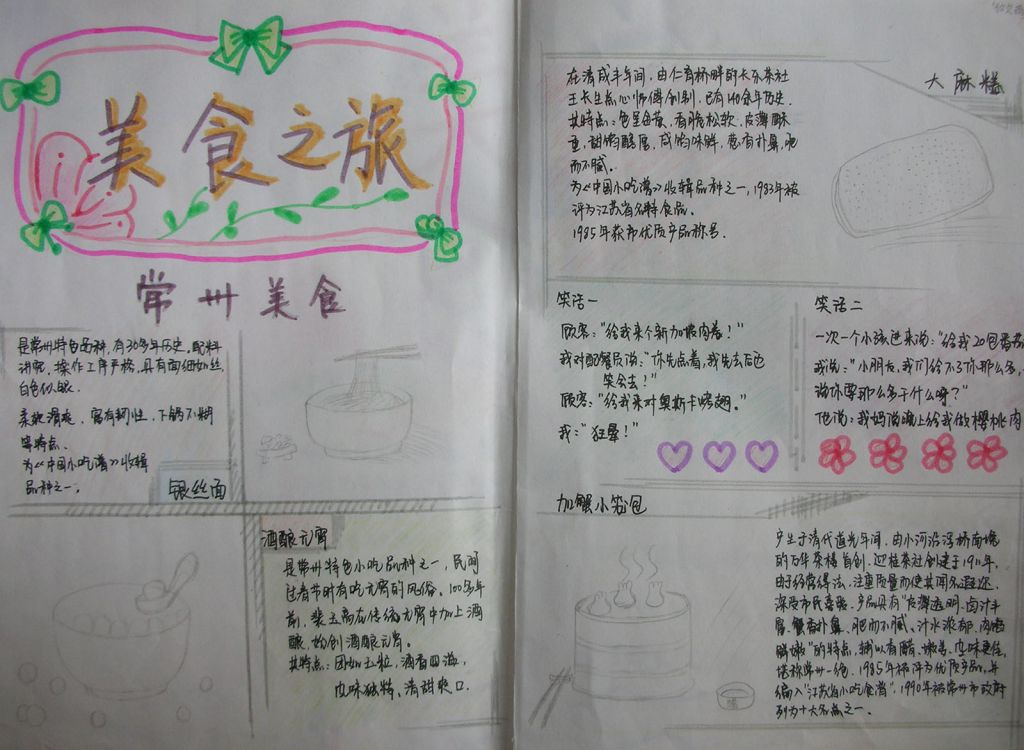 美食之旅
常州美食
是常州特色面种,有30多年历史。配料
讲究,操作工序严格,具有面细如丝,
白色似银、
柔软滑爽,富有韧性,下锅不糊
等特点、
为《中国小吃谱》收辑
品种之一。
银丝面
酒酿元宵
是常州特色小吃品种之一,民间
过春节时有吃元宵的风俗。100多年
前,
在传统元宵中加上酒
酿,始创酒酿元宵。
其特点:圆如玉粒,酒香四溢,
风味独特、清甜爽口.
大麻糕
在清咸丰年间,由仁育桥畔的长乐茶社
王长生点心师傅创制,已有140余年历史.
其特点:色呈金黄、香脆松软、皮薄酥
重,甜的醇厚,咸的味鲜,葱香扑鼻,肥
而不腻。
为《中国小吃谱》收辑品种之一,1983年被
评为江苏省名特食品。
1985年获市优质产品称号.
笑话一
顾客:“给我来个新加坡肉卷!”
我对配餐员说:“你先点着,我先去后边
笑会去!”
顾客:“给我来对奥斯卡烤翅。”
我:“狂晕!”
笑话二
一次一个小孩进来说:“给我20包番茄
我说:“小朋友,我们给不了你那么多,
你要那么多干什么呀?”
他说:我妈说晚上给我做樱桃肉
加蟹小笼包
产生于清代道光年间,由小河沿浮桥南堍
的万华茶楼首创,迎桂茶社创建于1911年,
由于经营得法,注重质量而使其闻名遐迩、
深受市民青睐。产品具有“皮薄透明、卤汁丰
富、蟹香扑鼻、肥而不腻、汁水浓郁、肉馅
鲜嫩”的特点,辅以香醋、嫩姜、风味更佳,
堪称常州一绝,1985年被评为优质产品,并
编入“江苏省小吃食谱”,1990年被常州市政府
列为十大名点之一.